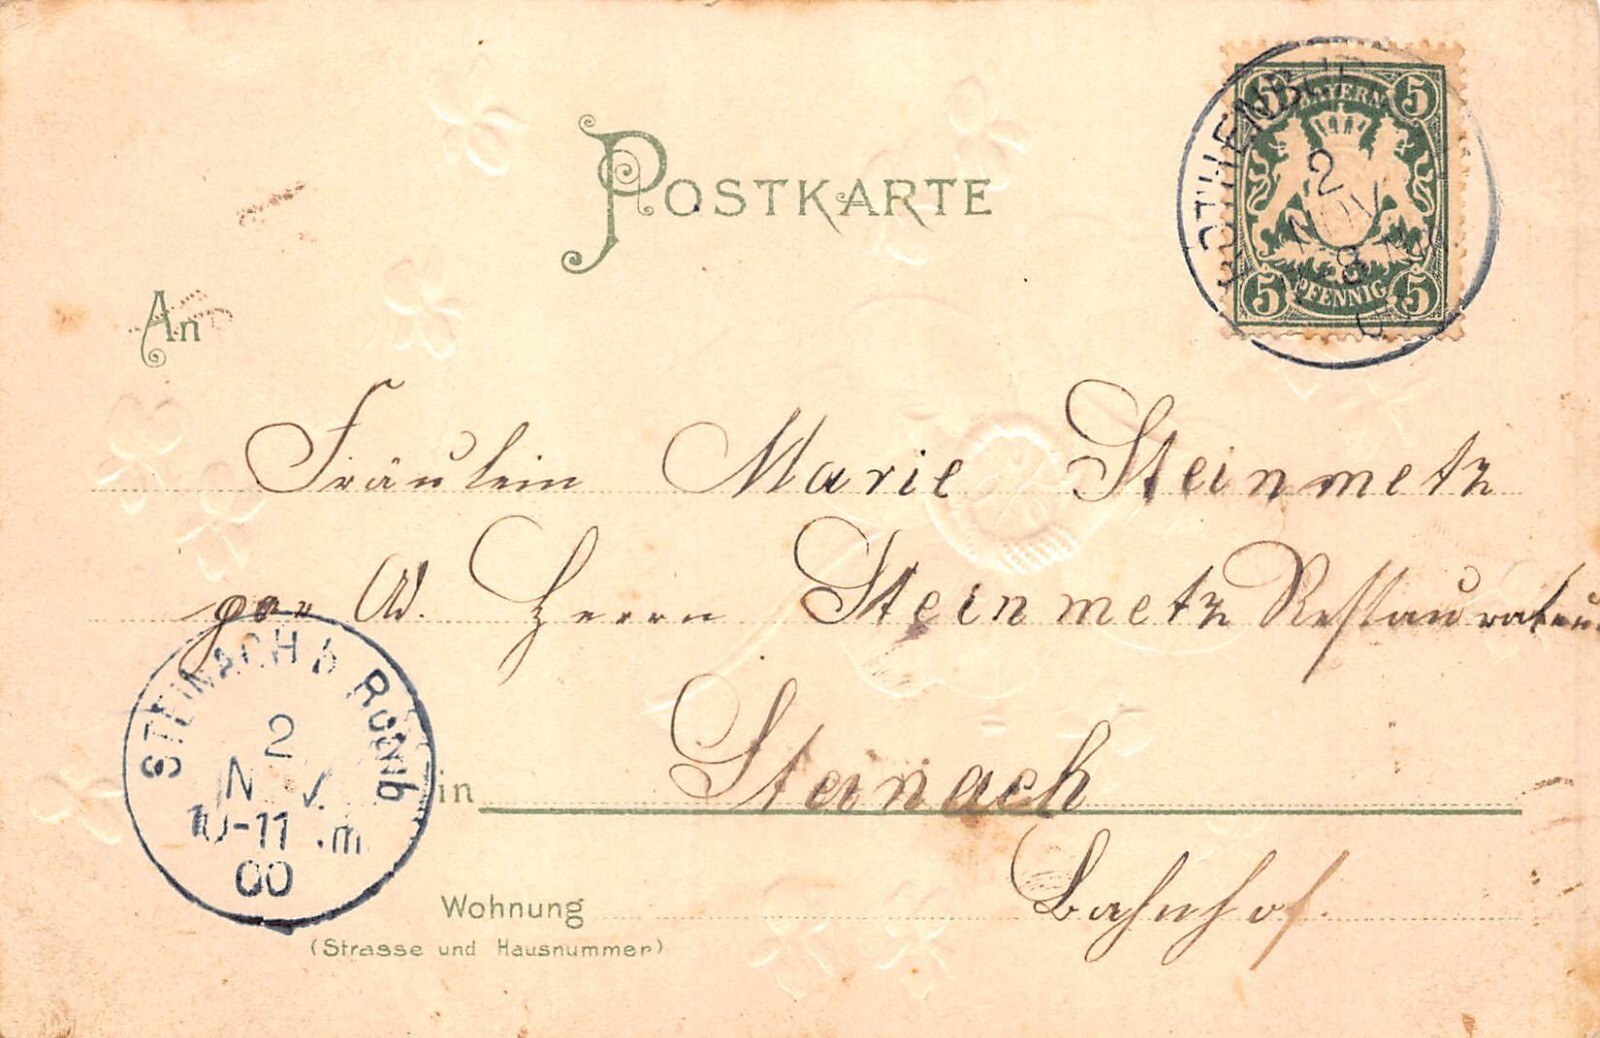 POSTKARTE
BAYERN
5 5
ROTHENBUR
2
NOV
8
PFENNIG
5 5
An
Fräulein Marie Steinmetz
per Ad. Herrn Steinmetz Restaurateur
STEINACH b ROTHb
2
N V.
10-11 .m
00
in Steinach
Bahnhof.
Wohnung
(Strasse und Hausnummer)